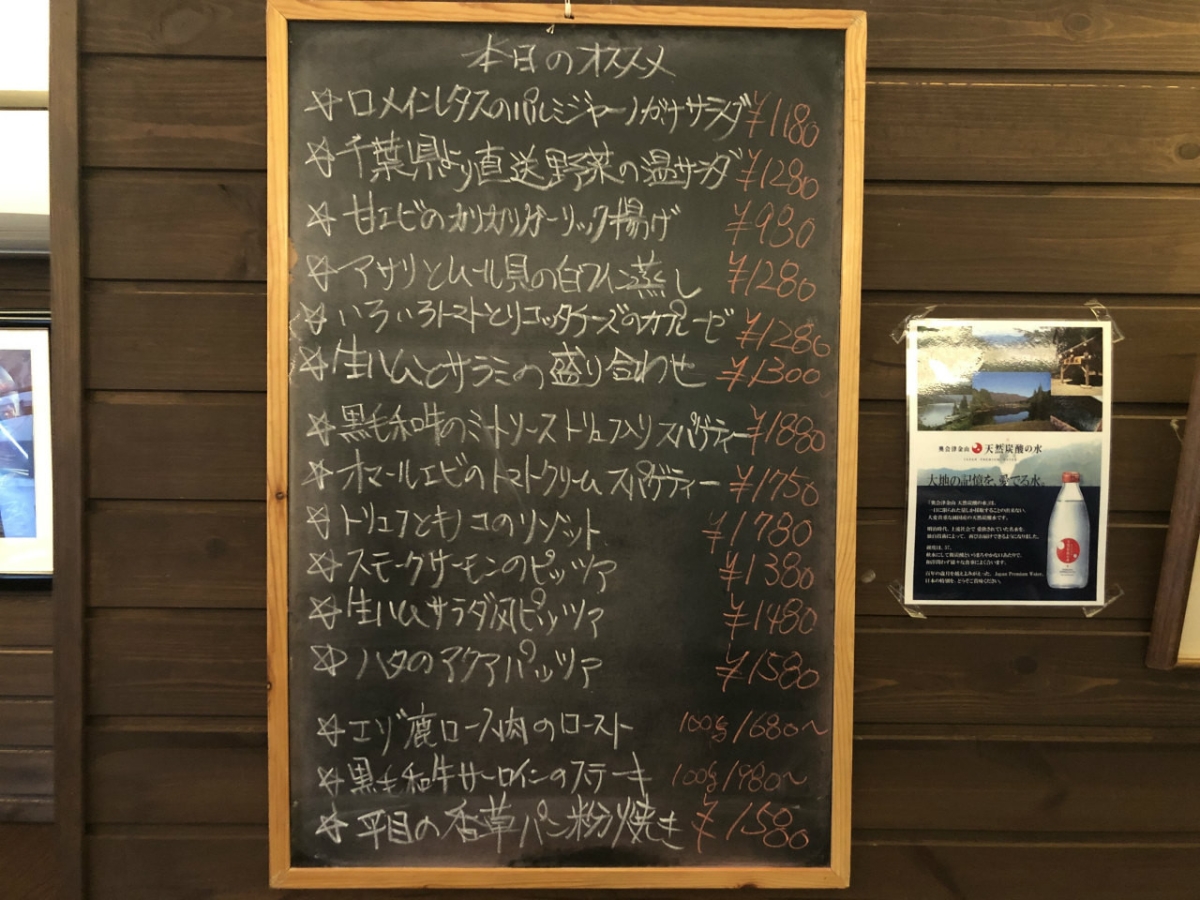 本日のオススメ
☆ロメインレタスのパルミジャーノがけサラダ ¥1180
☆千葉県より直送野菜の温サラダ ¥1280
☆甘エビのカリカリガーリック揚げ ¥980
☆アサリとムール貝の白ワイン蒸し ¥1280
☆いろいろトマトとリコッタチーズのカプレーゼ ¥1280
☆生ハムとサラミの盛り合わせ ¥1300
☆黒毛和牛のミートソーストリュフ入りスパゲティー ¥1880
☆オマールエビのトマトクリームスパゲティー ¥1750
☆トリュフとキノコのリゾット ¥1780
☆スモークサーモンのピッツァ ¥1380
☆生ハムサラダ風ピッツァ ¥1480
☆ハタのアクアパッツァ ¥1580
☆エゾ鹿ロース肉のロースト 100g 1680〜
☆黒毛和牛サーロインのステーキ 100g 1980〜
☆平目の香草パン粉焼き ¥1580
奥会津金山 天然炭酸の水
大地の記憶を、愛でる水。